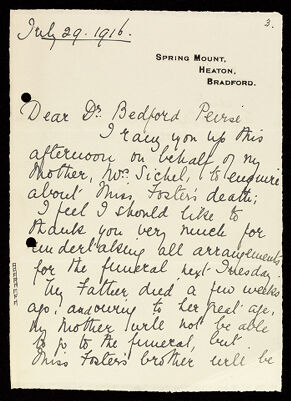 July 29. 1916.
3.
SPRING MOUNT,
HEATON,
BRADFORD.
Dear Dr. Bedford Peirse
I rang you up this
afternoon on behalf of my
Mother, Mrs. Sichel, to enquire
about Miss Foster's death;
I feel I should like to
thank you very much for
undertaking all arrangements
for the funeral next Tuesday.
My Father died a few weeks
ago, and owing to her great age,
my Mother will not be able
to go to the funeral, but
Miss Foster's brother will be